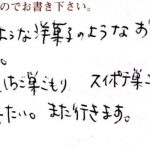 のでお書き下さい。
ような洋菓子のような お
。
いちご巣ごもり スイポテ巣ご
たい。また行きます。